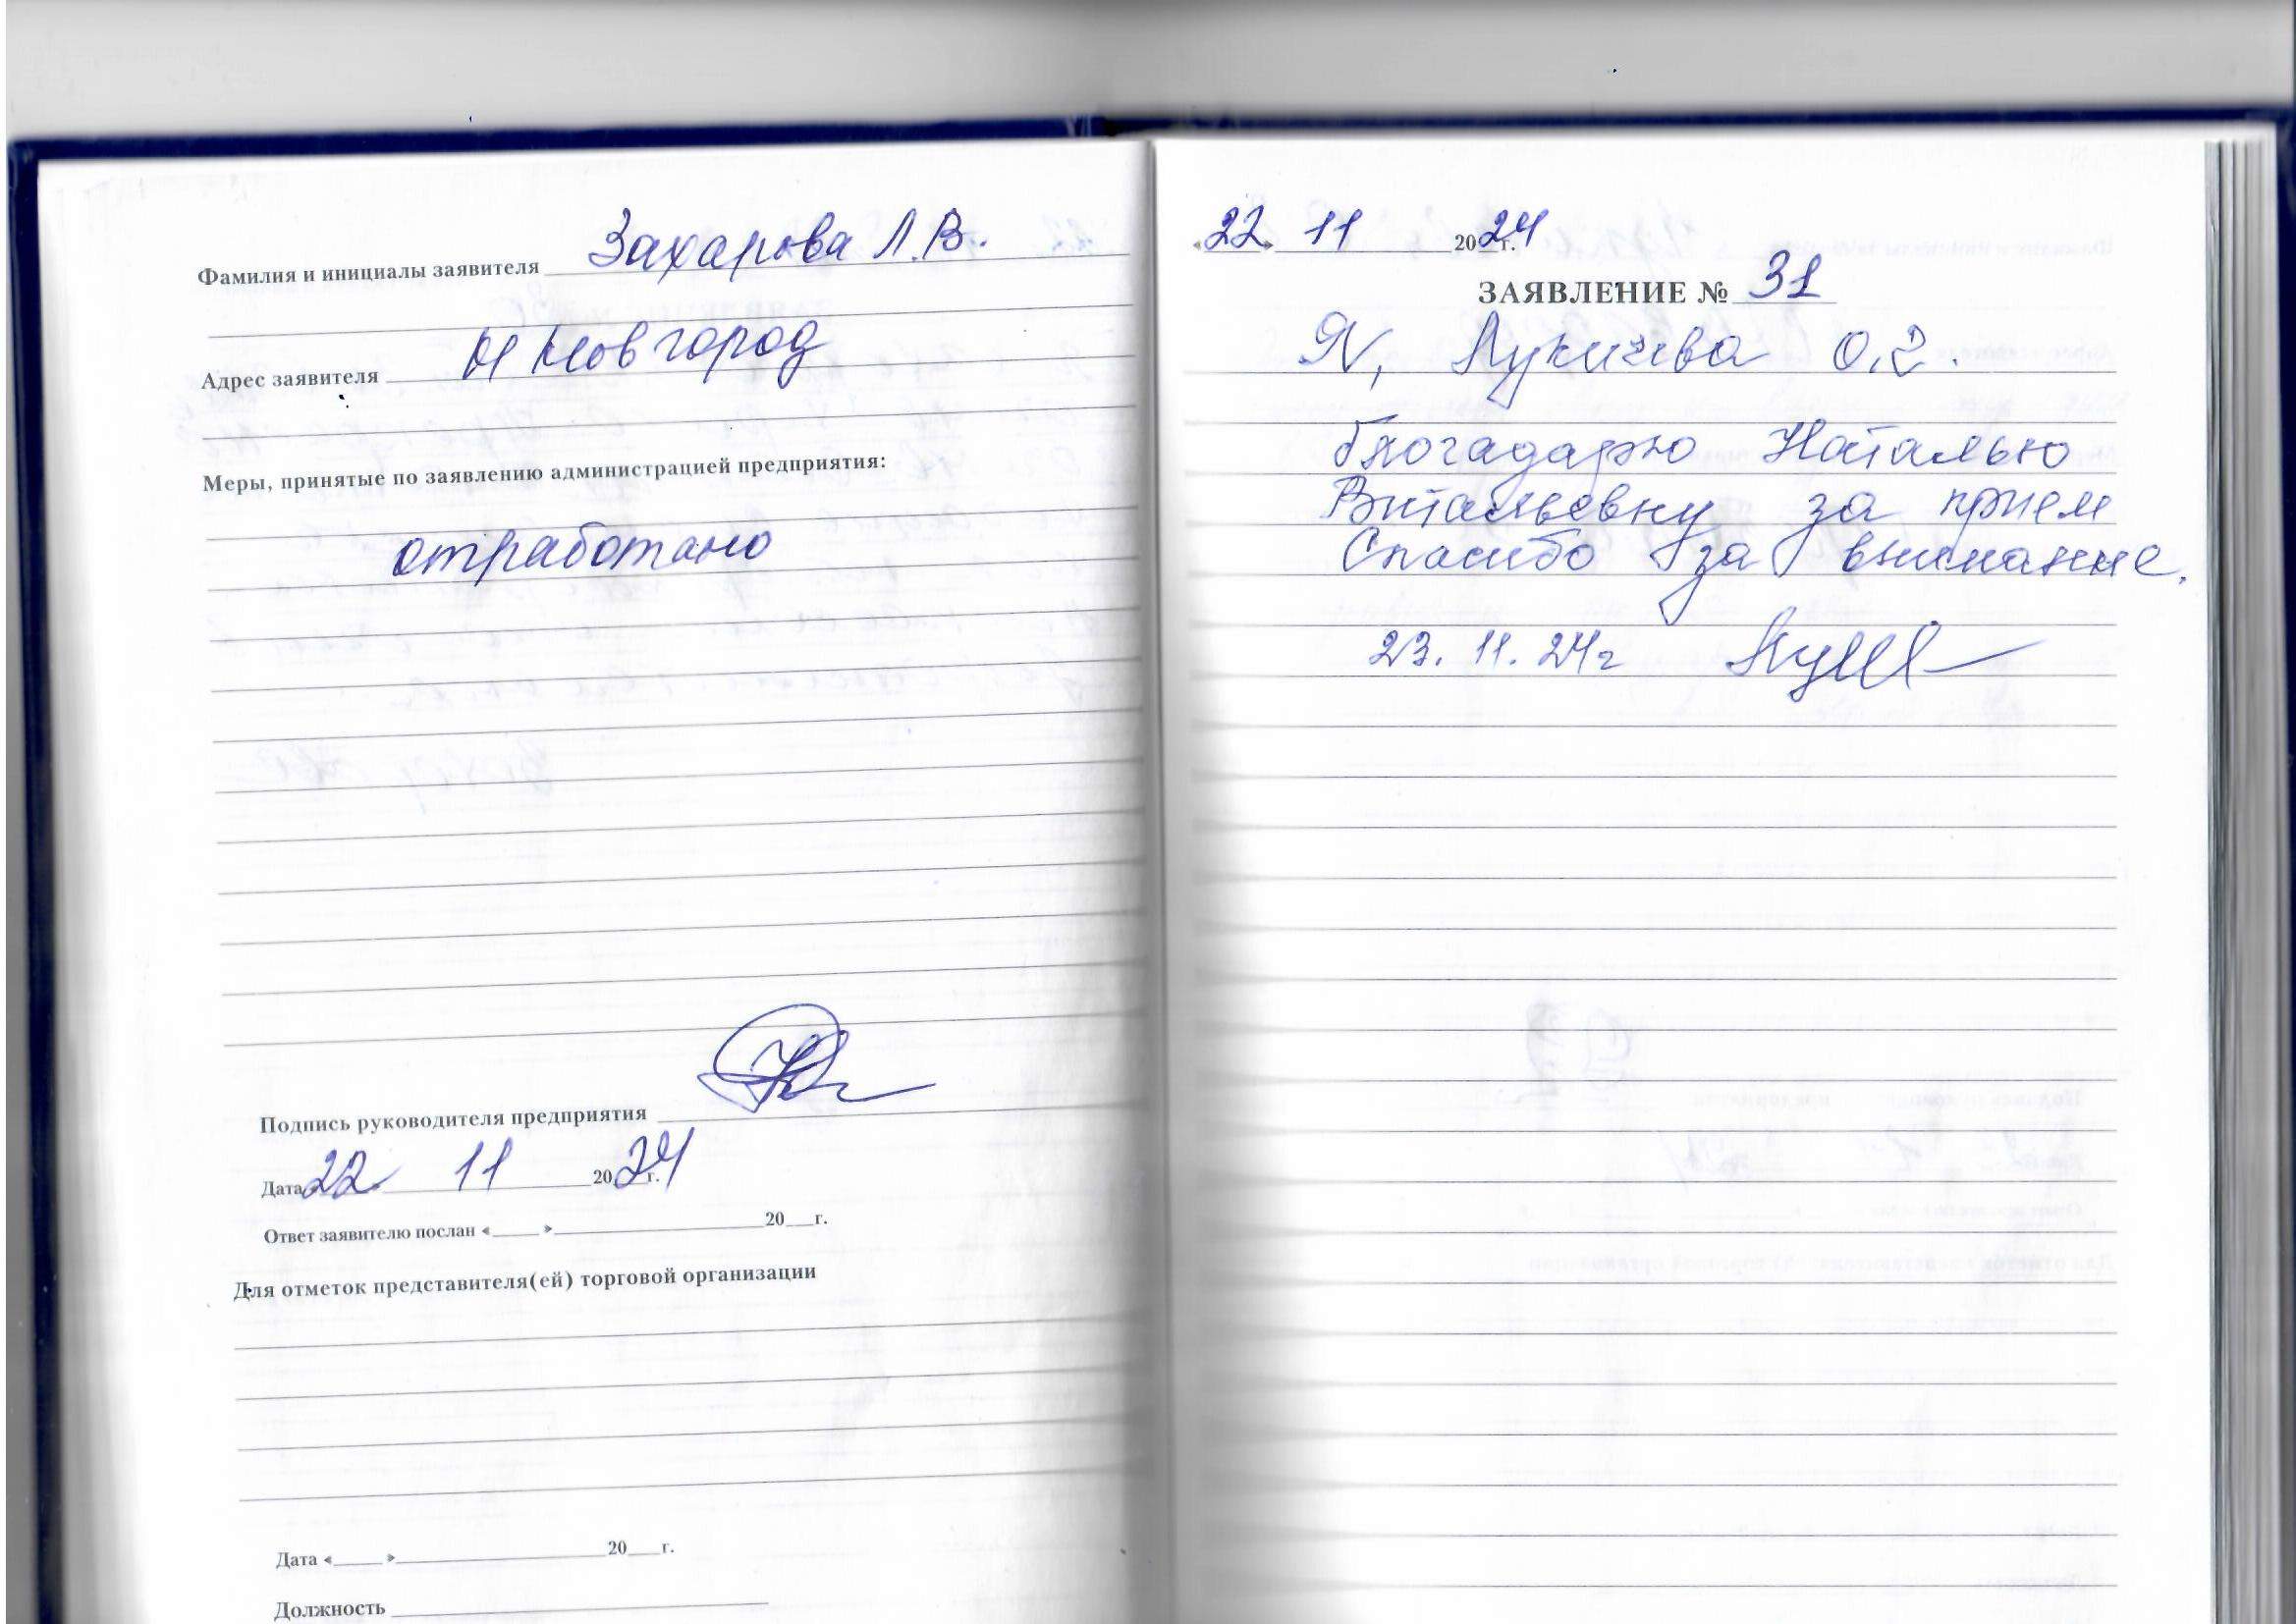 Фамилия и инициалы заявителя Захарова Л.В.
Адрес заявителя Н Новгород
Меры, принятые по заявлению администрацией предприятия:
отработано
Подпись руководителя предприятия
Дата 22. 11 2024 г.
Ответ заявителю послан « » 20 г.
Для отметок представителя(ей) торговой организации
Дата « » 20 г.
Должность
«22» 11 2024 г.
ЗАЯВЛЕНИЕ № 31
Я, Лукичева О.Г.
благадарю Наталью
Витальевну за прием
Спасибо за внимание.
23. 11. 24г